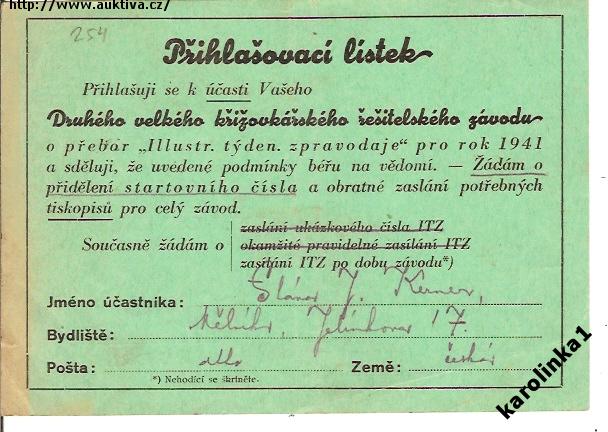 http://www.auktiva.cz/
254
Přihlašovací lístek
Přihlašuji se k účasti Vašeho
Druhého velkého křižovkářského řešitelského závodu
o přebor „Illustr. týden. zpravodaje" pro rok 1941
a sděluji, že uvedené podmínky béřu na vědomí. — Žádám o
přidělení startovního čísla a obratné zaslání potřebných
tiskopisů pro celý závod.
Současně žádám o
zaslání ukázkového čísla ITZ
okamžité pravidelné zasílání ITZ
zasílání ITZ po dobu závodu*)
Jméno účastníka: J. Kerner,
Bydliště: Mělník, Jelínkova 17.
Pošta: dtto Země: česká
*) Nehodící se škrtněte.
karolinka1